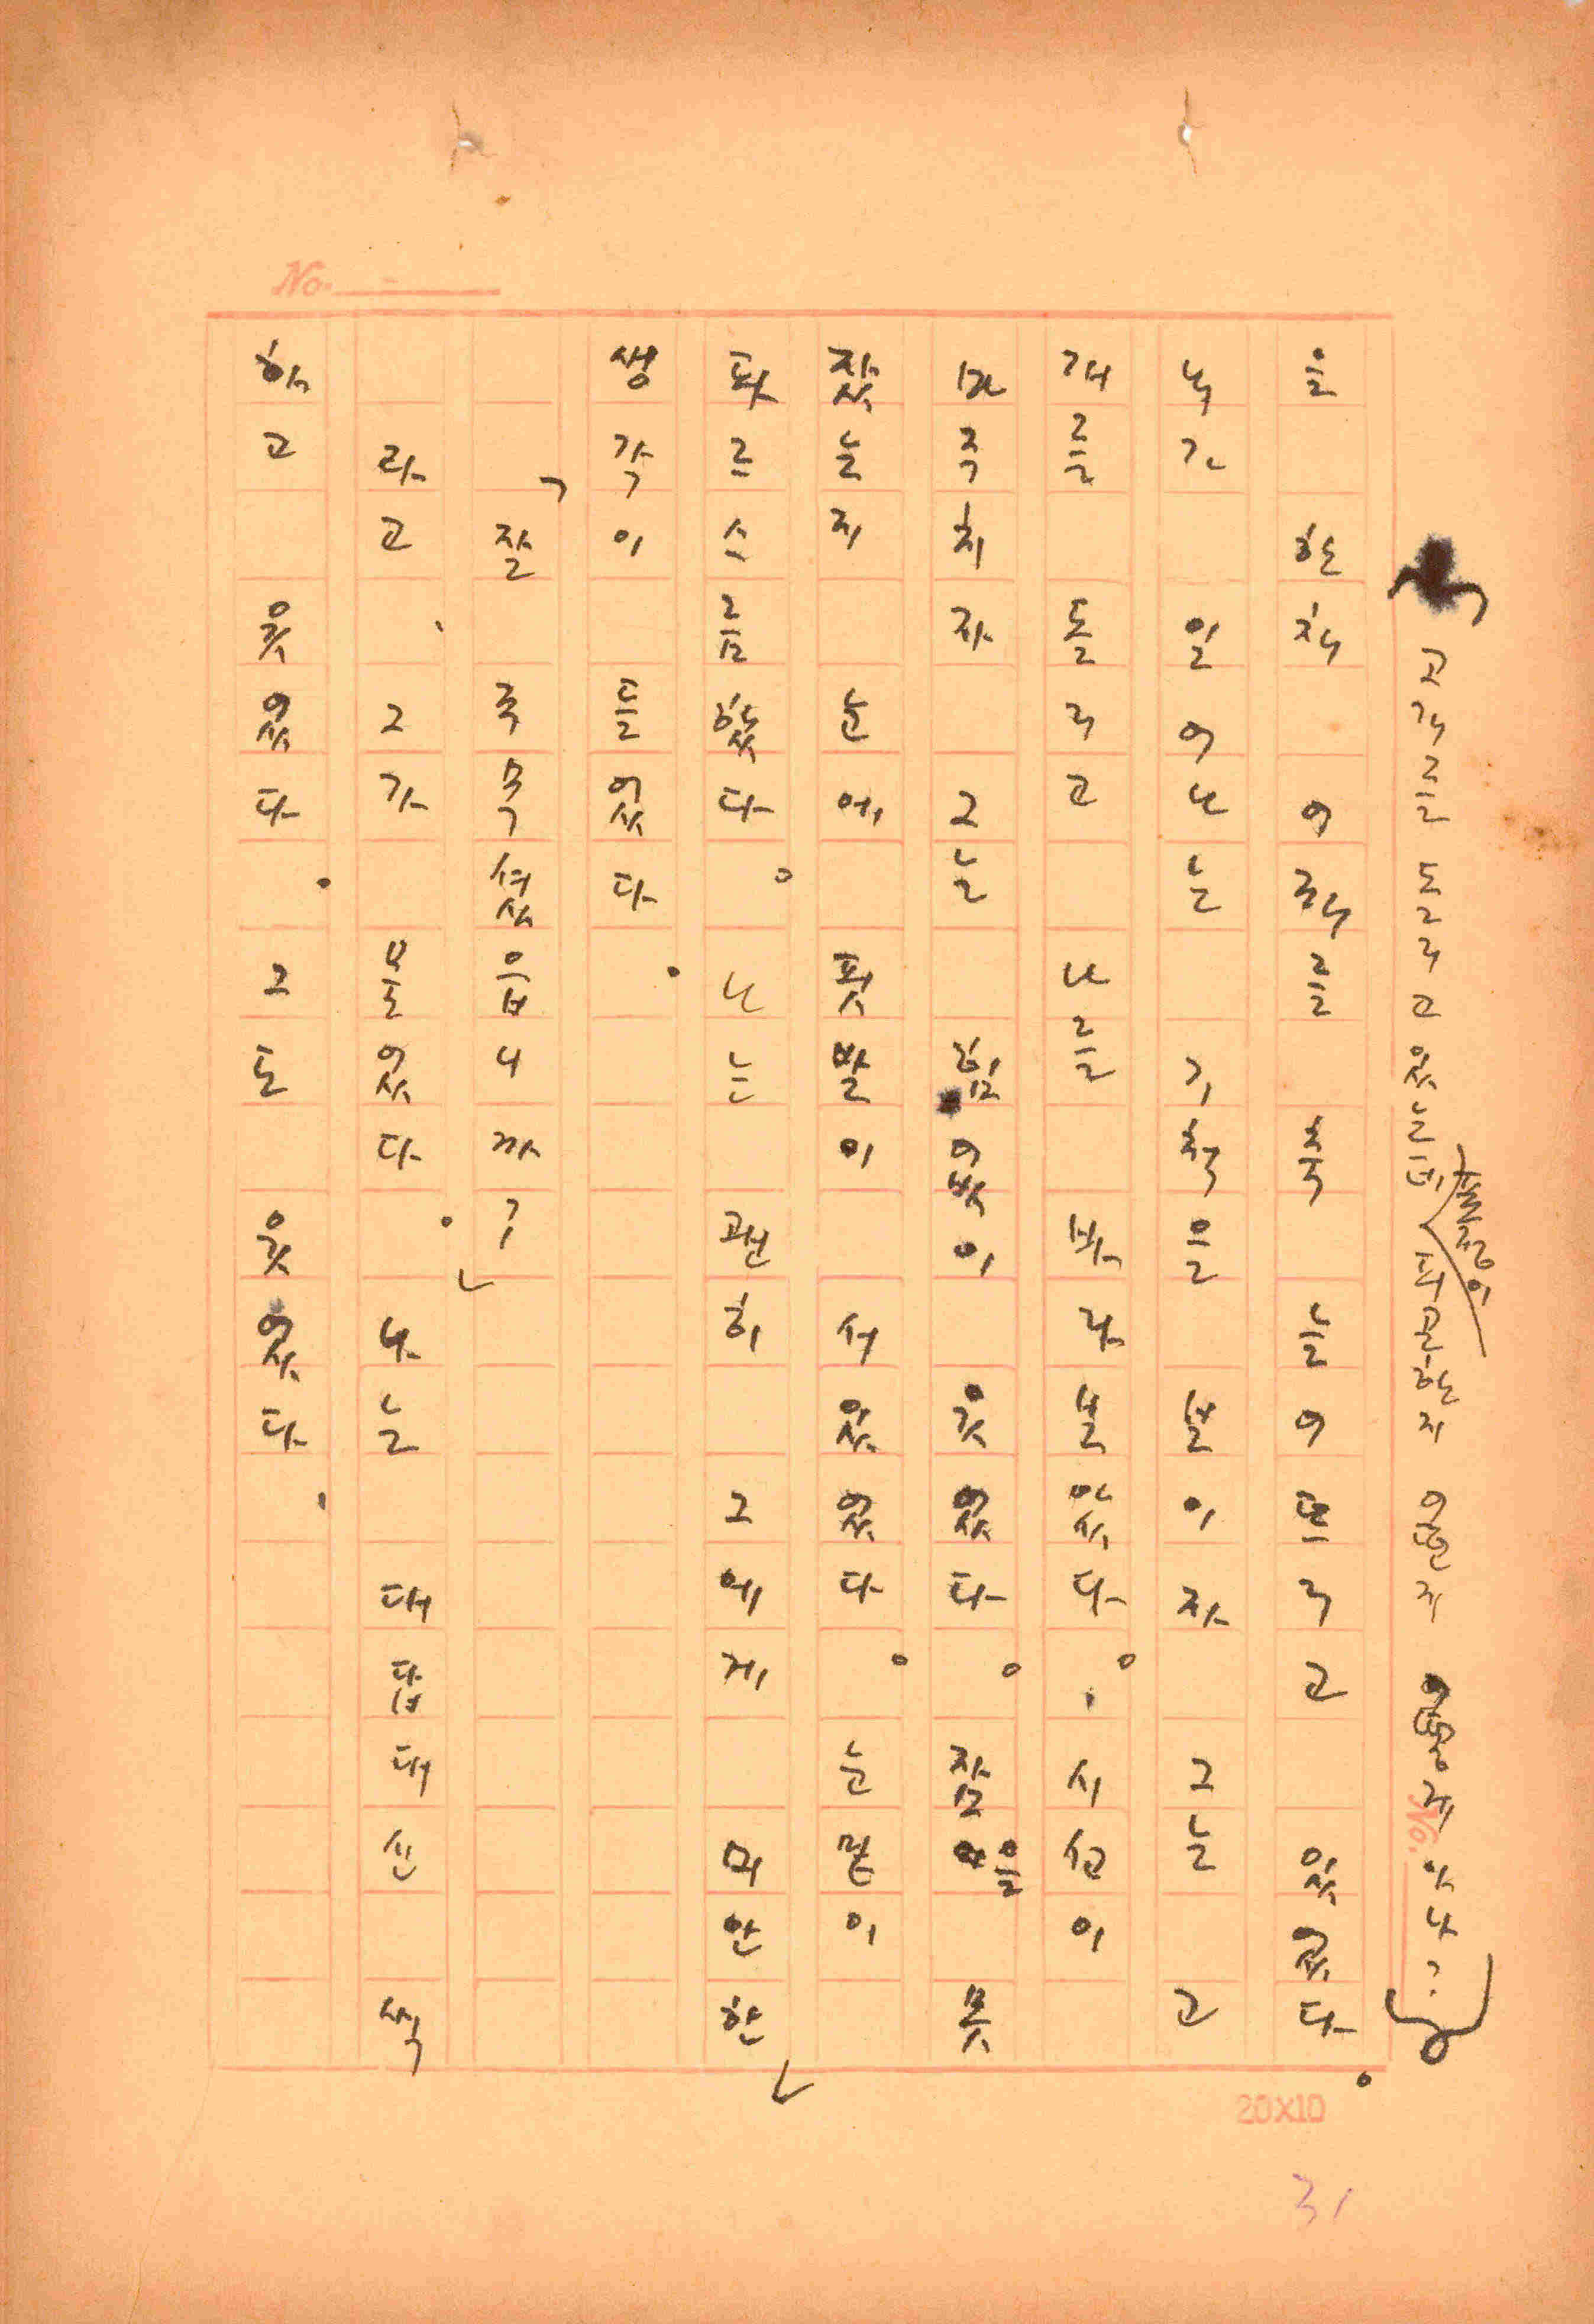 고개를 돌리고 있는데 피곤한지 어떤지 어떻게 아나?
을 한채 어깨를 축 늘어뜨리고 있었다.
내가 일어나는 기척을 보이자 그는 고
개를 돌리고 나를 바라보았다. 시선이
마주치자 그는 힘없이 웃었다. 잠을 못
잤는지 눈에 핏발이 서 있었다. 눈밑이
파르스름했다. 나는 괜히 그에게 미안한
생각이 들었다.
「잘 주무셨읍니까?」
라고, 그가 물었다. 나는 대답대신 씩
하고 웃었다. 그도 웃었다.
No.
No.
20X10
31